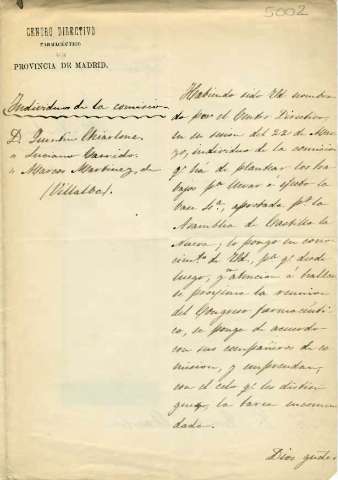 5002
CENTRO DIRECTIVO
FARMACÉUTICO
DE LA
PROVINCIA DE MADRID.
Individuos de la comision
D. Quintin Chiarlone
" Luciano Garrido
" Marcos Martinez, de
(Villalba)
Habiendo sido Ud nombra
do por el Centro Directivo,
en su sesion del 22 de Ma
yo, individuo de la comision
qe ha de plantear los tra
bajos pa llevar a efecto la
base 4a, aprobada pr la
Asamblea de Castilla la
Nueva; lo pongo en cono
cimto de Ud., pa qe desde
luego, y en atencion á hallar
se proxima la reunion
del Congreso farmacéuti
co, se ponga de acuerdo
con sus compañeros de co
mision, y emprendan,
con el celo qe les distin
gue, la tarea encomen
dada.
Dios gude.